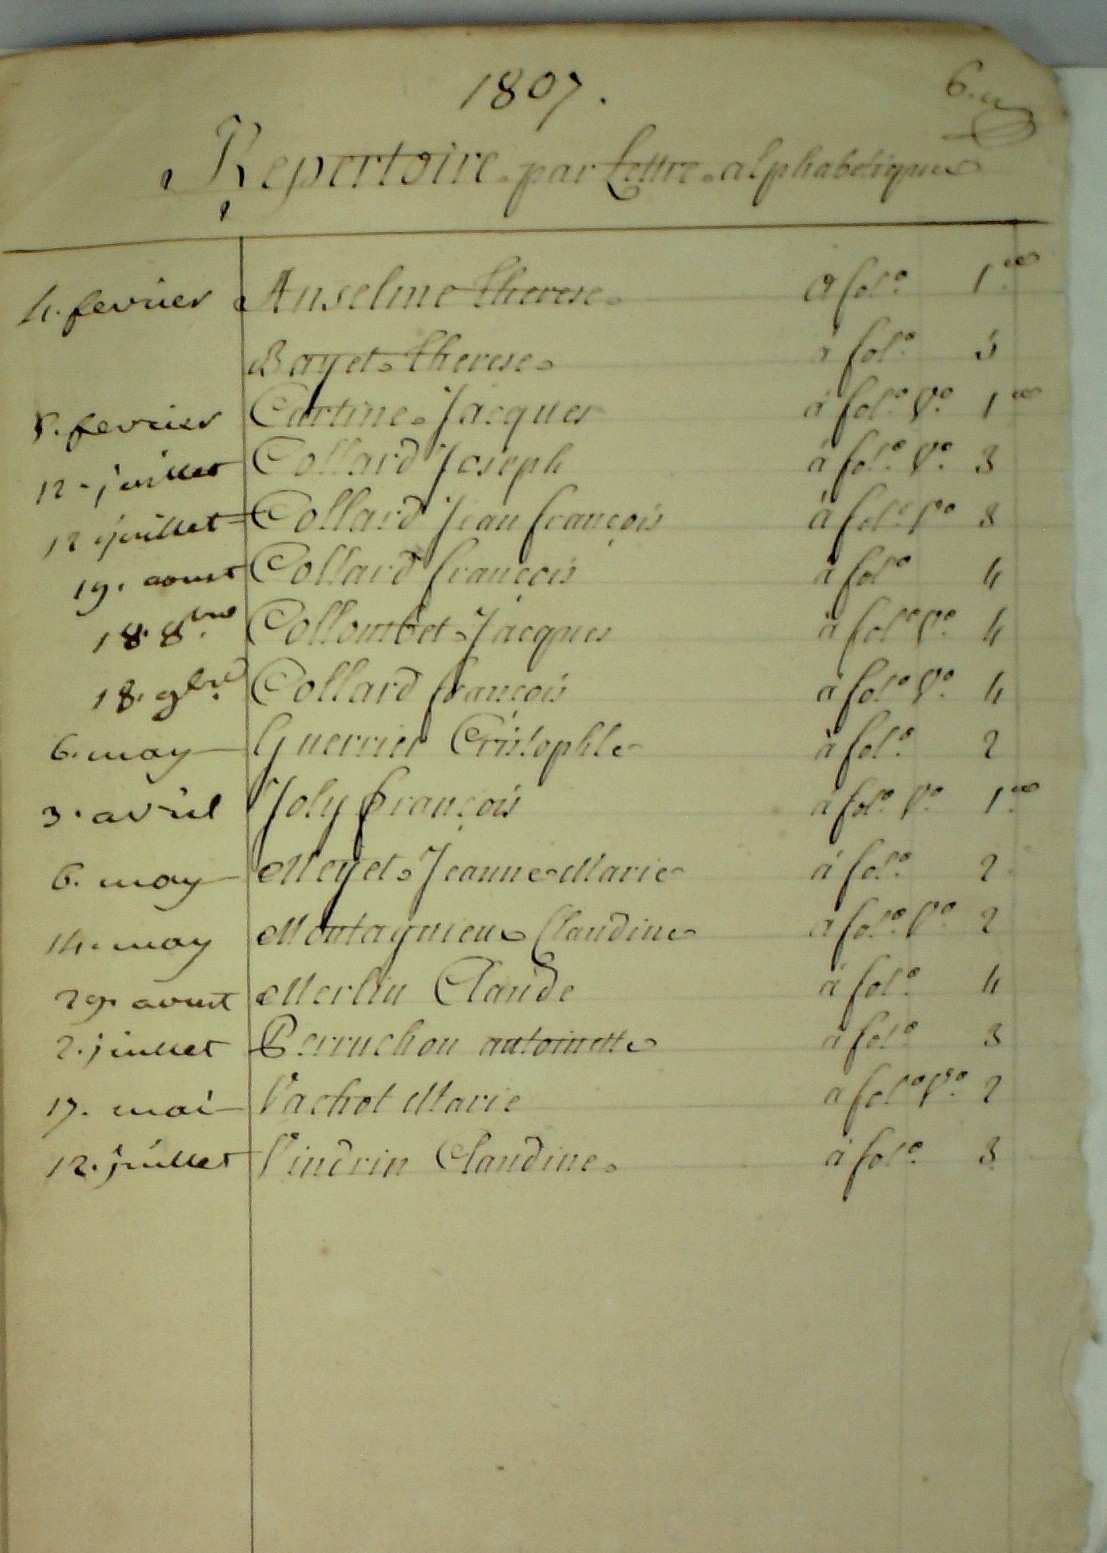 1807.
6.
Repertoire par Lettre alphabetique
4. fevrier Anselme therese a fol.o 1.er
Bayet therese à fol.o 3
8. fevrier Cartine Jacques à fol.o V.o 1.er
12. juillet Collard Joseph à fol.o V.o 3
12 juillet Collard Jean françois à fol.o V.o 3
19. aoust Collard françois à fol.o 4
18. 8bre Collombet Jacques à fol.o V.o 4
18. 9bre Collard françois à fol.o V.o 4
6. may Guerrier Cristophle à fol.o 2
3. avril Joly françois à fol.o V.o 1.er
6. may Meyet Jeanne Marie à fol.o 2
14. may Montagnieux Claudine à fol.o V.o 2
29. aoust Merlin Claude à fol.o 4
2. juillet Perruchon antoinette à fol.o 3
17. mai Vachot Marie a fol.o V.o 2
12. juillet Vindrin Claudine à fol.o 3